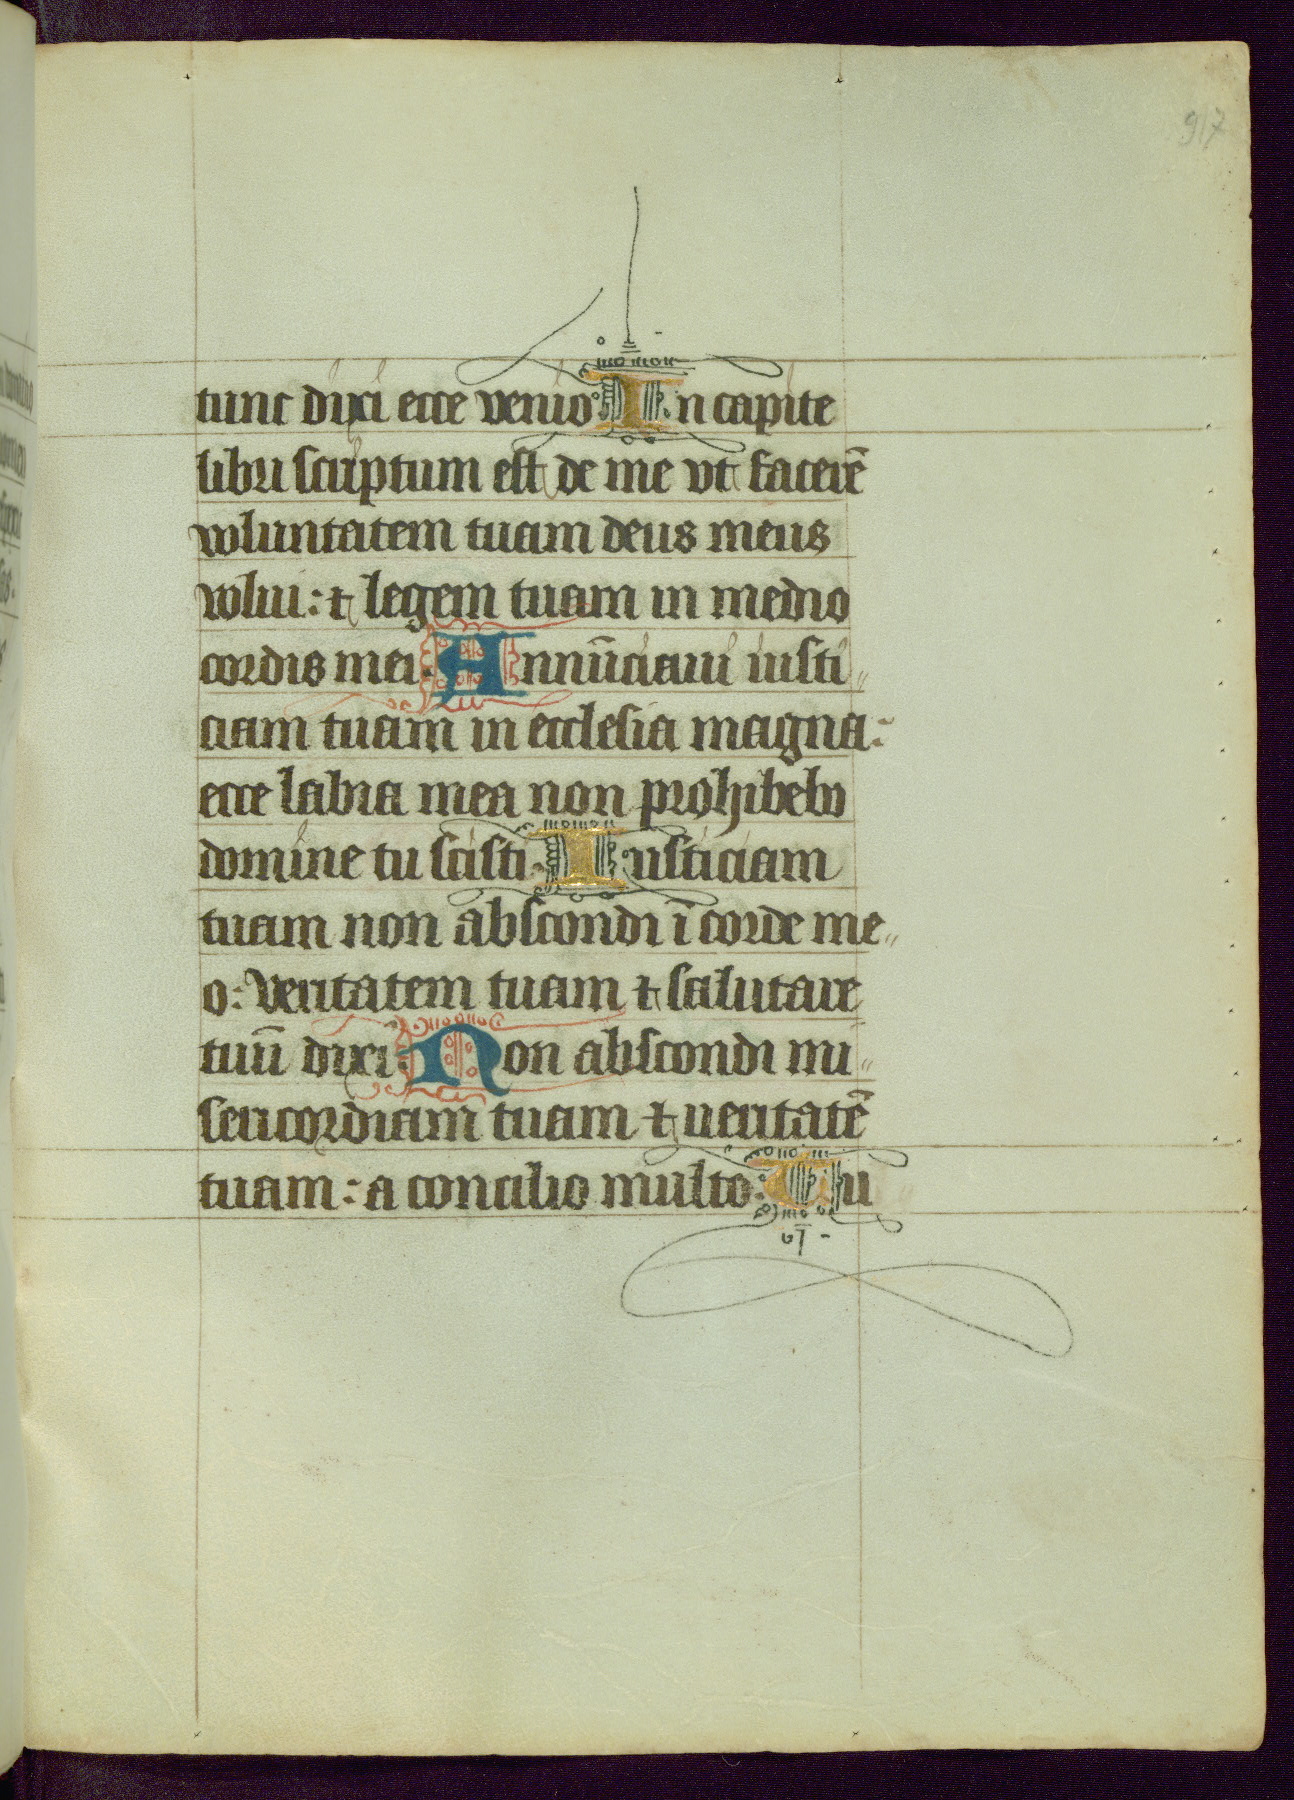 97
tunc dixi ecce venio In capite
libri scriptum est de me vt facerē
voluntatem tuam deus meus
volui: & legem tuam in medio
cordis mei. Annūciaui iusti
ciam tuam in ecclesia magna:
ecce labia mea non prohibebo
domine tu scisti. Iusticiam
tuam non abscondi ī corde me
o: veritatem tuam & salutare
tuū dixi. Non abscondi mi
sericordiam tuam & ueritatē
tuam: a concilio multo. Tu